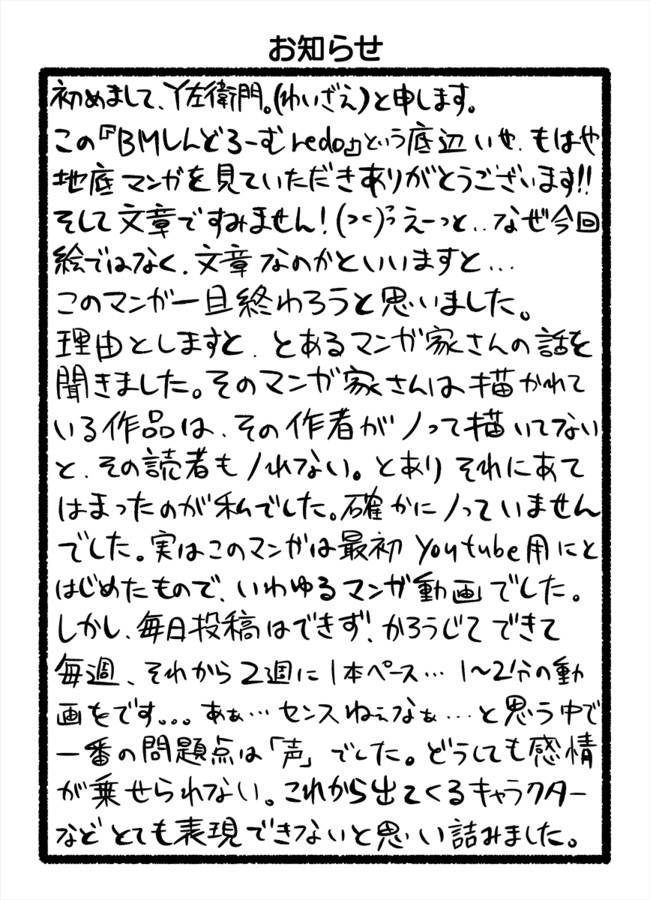 お知らせ
初めまして、Y左衛門。(わいざえ)と申します。
この『BMしんどろーむredo』という底辺いや、もはや
地底マンガを見ていただきありがとうございます!!
そして文章ですみません!(>＜)ﾗえーっと..なぜ今回
絵ではなく、文章なのかといいますと...
このマンガ一旦終わろうと思いました。
理由としますと、とあるマンガ家さんの話を
聞きました。そのマンガ家さんは描かれて
いる作品は、その作者がノって描いてない
と、その読者もノれない。とありそれにあて
はまったのが私でした。確かにノっていません
でした。実はこのマンガは最初Youtube用にと
はじめたもので、いわゆるマンガ動画でした。
しかし、毎日投稿はできず、かろうじてできて
毎週、それから2週に1本ペース…1〜2分の動
画をです。。。あぁ…センスねぇなぁ…と思う中で
一番の問題点は「声」でした。どうしても感情
が乗せられない。これから出てくるキャラクター
などとても表現できないと思い詰みました。